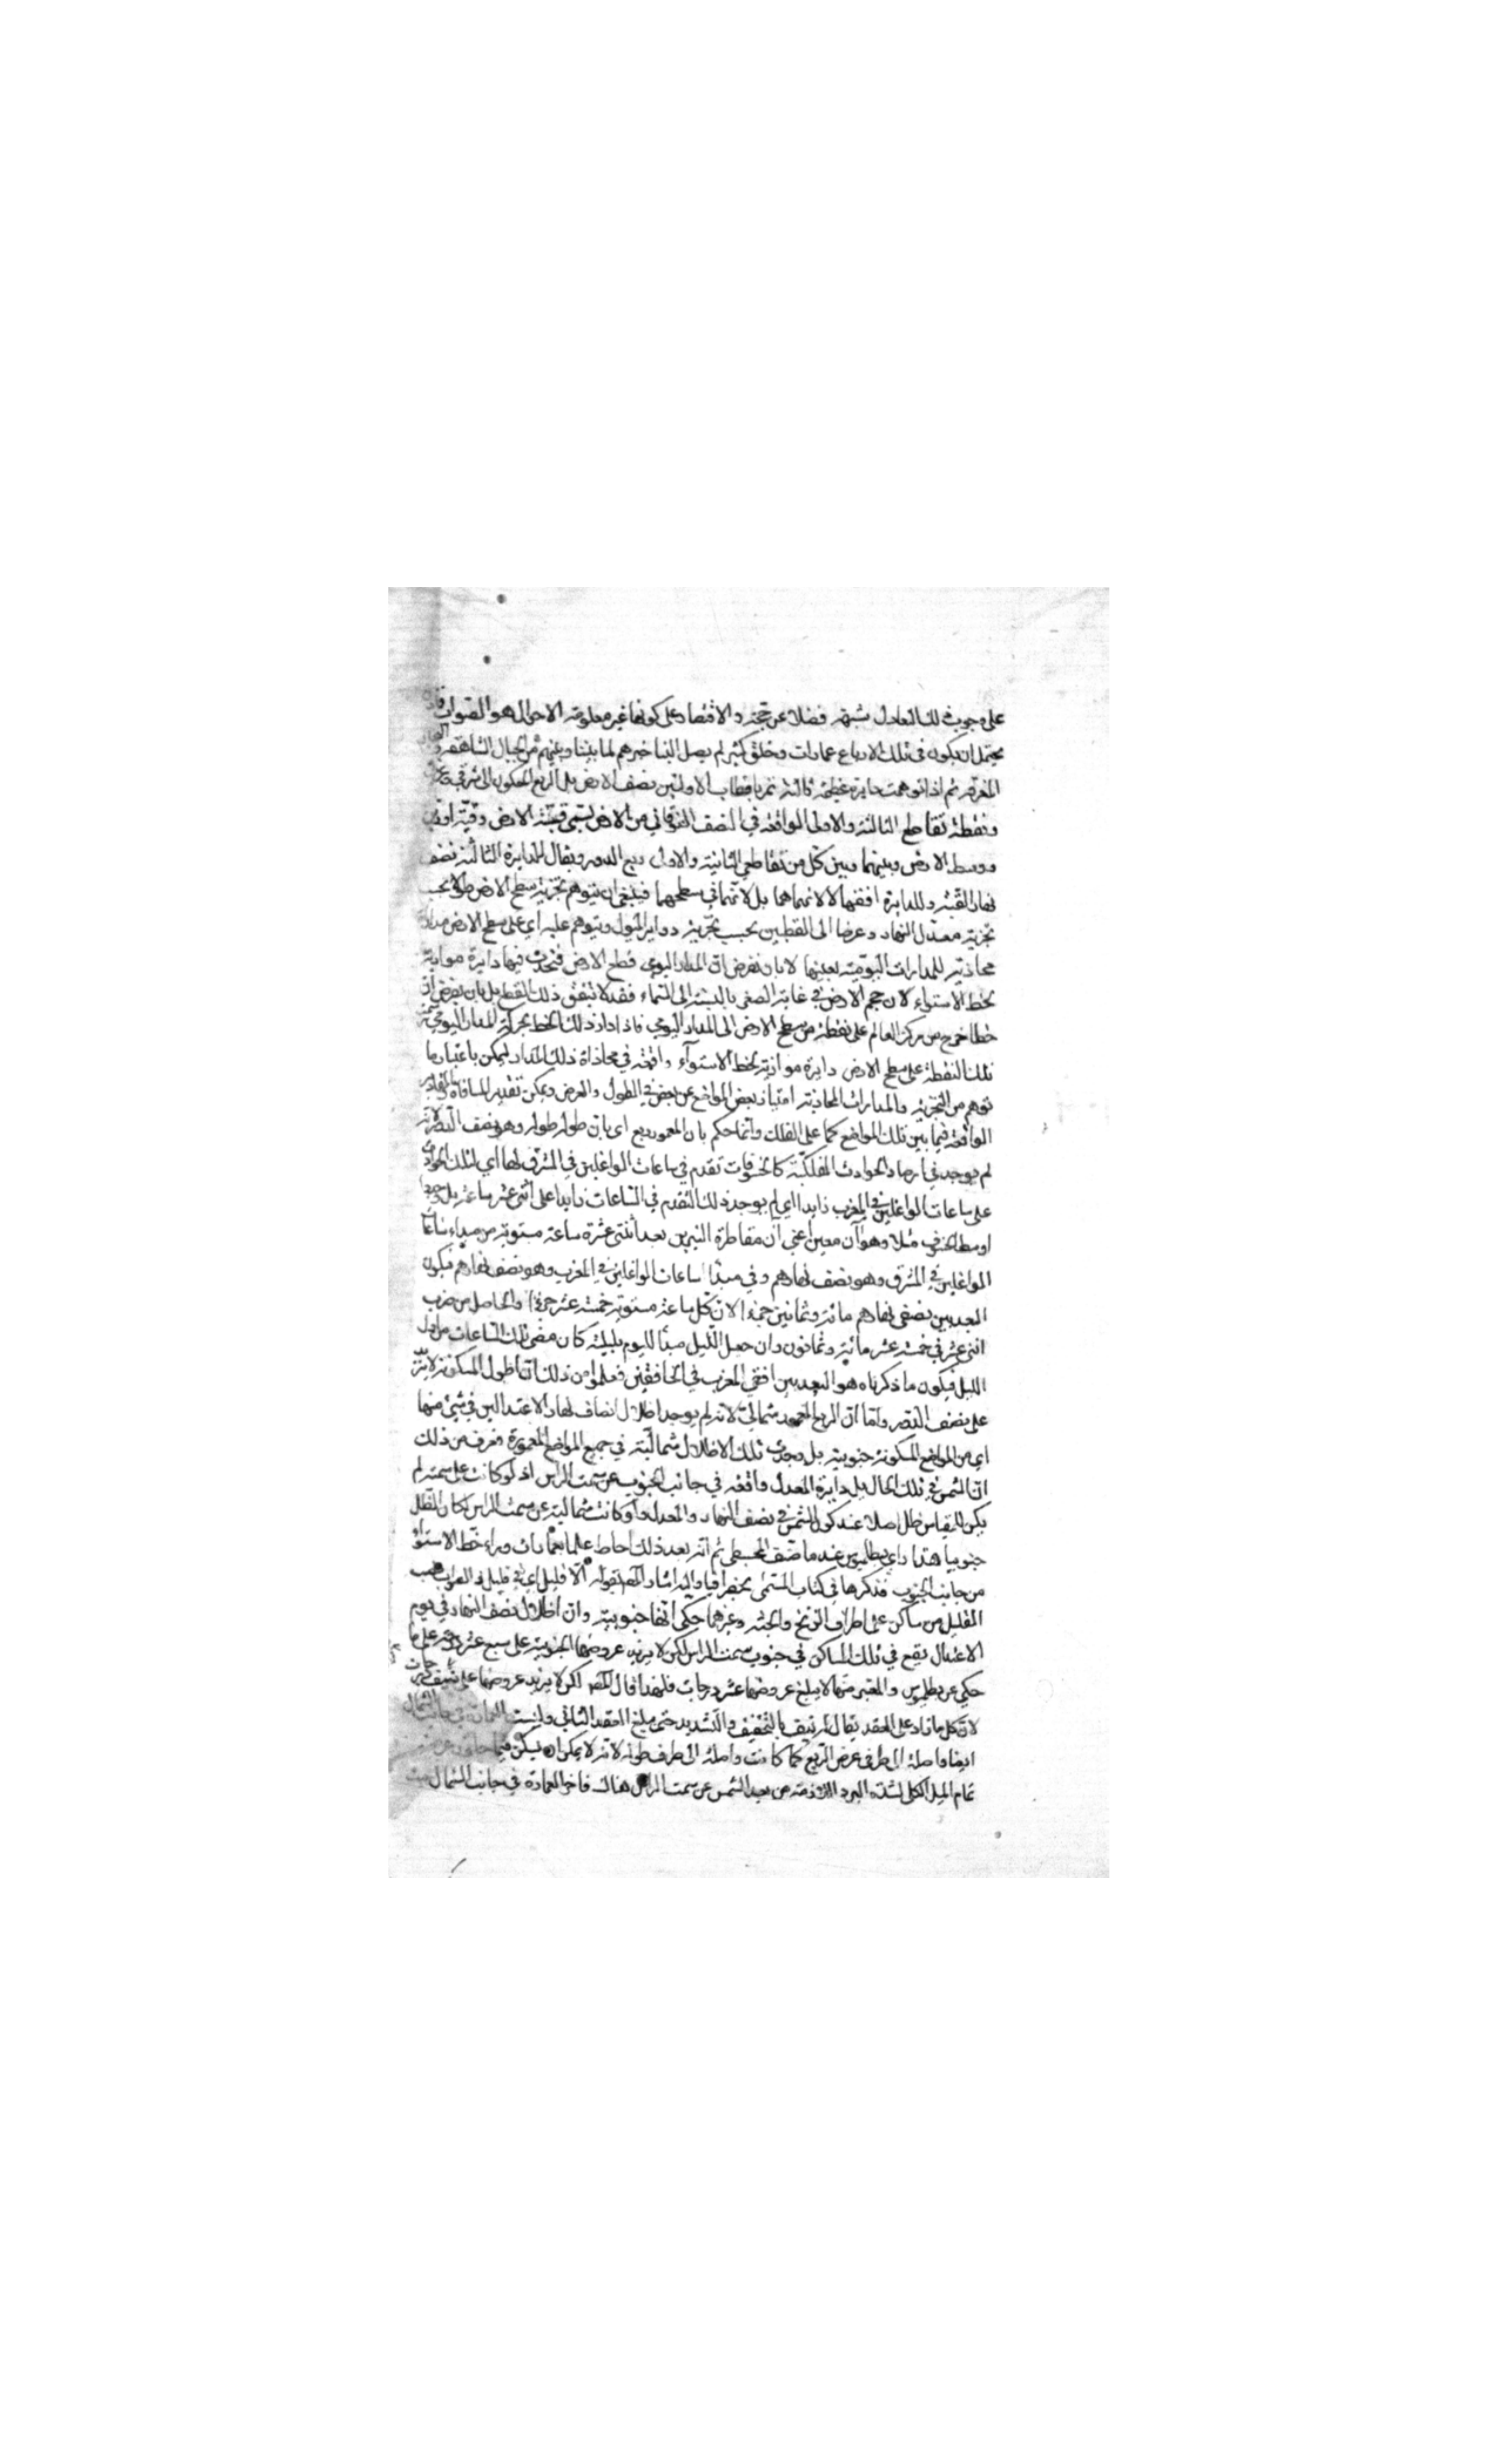 على وجوب ذلك التعادل شبهة فضلا عن حجة والاقتصار على كونها غير معلومة الاحوال هو الصواب فانه
يحتمل ان يكون في تلك الارباع عمارات وخلق كثير لم يصل الينا خبرهم لما بيننا وبينهم من الجبال الشاهقة والبحار
المغرقة ثم اذا توهمت دايرة عظيمة ثالثة تمر باقطاب الاوليين بنصف الارض بل الربع المسكون الى شرقي وغربي
ونقطة تقاطع الثالثة والاولى الواقعة في النصف الفوقاني من الارض تسمى قبة الارض وقبة ارين
ووسط الارض وبينهما وبين كل من تقاطعي الثانية والاولى ربع الدور ويقال للدايرة الثالثة نصف
نهار القبة وللدايرة افقها لا لانهما هما بل لانهما في سطحهما فينبغي ان يتوهم تجزية سطح الارض طولا بحسب
تجزية معدل النهار وعرضا الى القطبين بحسب تجزية دواير الميول ويتوهم عليه اي على سطح الارض مدارات
محاذية للمدارات اليومية بعينها لا بان نفرض ان المدار اليومي قطع الارض فتحدث فيها دايرة موازية
لخط الاستواء لان حجم الارض في غاية الصغر بالنسبة الى السماء فقد لا يتفق ذلك القطع بل بان يفرض ان
خطا خرج من مركز العالم على نقطة من سطح الارض الى المدار اليومي فاذا ادار ذلك الخط بحركة المدار اليومي
تلك النقطة على سطح الارض دايرة موازية لخط الاستوآء واقعة في محاذاة ذلك المدار ليمكن باعتبار ما
توهم من التجزية والمدارات المحاذية امتياز بعض المواضع عن بعض في الطول والعرض ويمكن تقدير المسافات
الواقعة فيما بين تلك المواضع كما على الفلك وانما حكم بان المعمور ربع اي بان طوله طوله وهو نصف الدور لانه
لم يوجد في ارصاد الحوادث الفلكية كالخسوفات تقدم في ساعات الواغلين في المشرق لها اي لتلك الحوادث
على ساعات الواغلين في المغرب زايدا اي لم يوجد ذلك التقدم في الساعات زايدا على اثنى عشر ساعة بل وجدوا
اوسط الخسوف مثلا وهو آن معين اعني آن مقاطرة النيرين بعد اثنتى عشرة ساعة مستوية من مبداء ساعات
الواغلين في المشرق وهو نصف نهارهم وفي مبدأ ساعات الواغلين في المغرب وهو نصف نهارهم فيكون
البعد بين نصفي نهارهم مائة وثمانين جزءا لان كل ساعة مستوية خمسة عشر جزءا والحاصل من ضرب
اثنى عشر في خمسة عشر مائة وثمانون وان جعل الليل مبدأ لليوم بليلته كان مضى تلك الساعات من اول
الليل فيكون ما ذكرناه هو البعد بين افقي المغرب في الخافقين فعلموا من ذلك ان طول المسكونة لا يزيد
على نصف الدور واما ان الربع المعمور شمالي لانه لم يوجد اظلال انصاف نهار الاعتدالين في شئ منها
اي من المواضع المسكونة جنوبية بل وجدت تلك الاظلال شمالية في جميع المواضع المعمورة فعرف من ذلك
ان الشمس في تلك الحال بل دايرة المعدل واقعة في جانب الجنوب عن سمت الراس اذ لو كانت على سمته لم
يكن للمقياس ظل اصلا عند كون الشمس في نصف النهار والمعدل ولو كانت شمالية عن سمت الراس لكان الظل
جنوبيا هذا راي بطلميوس عند ما صنف المجسطي ثم انه بعد ذلك احاط علما بعمارات وراء خط الاستواء
من جانب الجنوب فذكرها في كتاب المسمى بجغرافيا واليه اشار المص بقوله الا قليل اي في قليل من العمران
القليل من ساكن على اطراف الزنج والحبشة وغيرهما حكى انها جنوبية وان اظلال نصف النهار في يوم
الاعتدال يقع في تلك المساكن في جنوب سمت الراس لكن لا يزيد عروضها الجنوبية على سبع عشر درجة على ما
حكي عن بطلميوس والمعتبر منها لا يبلغ عروضها عشر درجات فلهذا قال المص لكن لا يزيد عروضها على نيف
لان كل ما زاد على العقد يقال له نيف بالتخفيف والتشديد حتى يبلغ العقد الثاني وليست العمارة في جانب الشمال
ايضا واصلة الى طرفي عرض الربع كما كانت واصلة الى طرف طوله لانه لا يمكن ان يسكن فيما
تمام الميل الكلي لشدة البرد اللازمة من بعد الشمس عن سمت الراس هناك فاخر العمارة في جانب الشمال